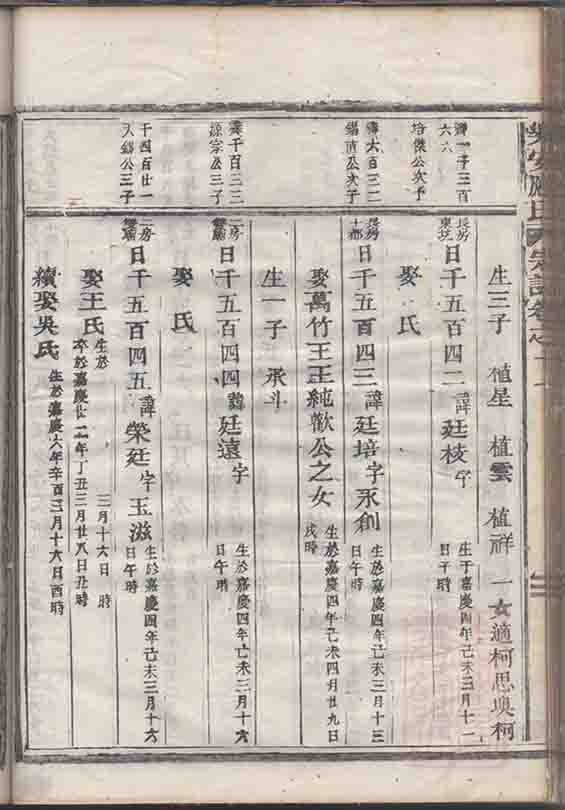 氏大宗譜卷之
生三子 植星 植雲 植祥 一女適柯思奐柯
六六
培傑公次子
長房
日千五百四二諱廷枝字 生于嘉慶四年己未三月十一
日子時
娶 氏
壽六百三二
公次子
長房
十都
日千五百四三諱廷培字永創 生於嘉慶四年己未三月十三
日午時
娶萬竹王正純歡公之女 生於嘉慶四年己未四月廿九日
戌時
生一子 承斗
壽千百三三
源宗公三子
二房
日千五百四四諱廷遠字 生於嘉慶四年己未三月十六
日午時
娶 氏
千四百廿一
公三子
二房
日千五百四五諱榮廷字玉滋 生於嘉慶四年己未三月十六
日午時
娶王氏 生於 三月十六日 時
卒於嘉慶廿二年丁丑三月廿八日丑時
續娶吳氏 生於嘉慶六年辛酉三月十六日酉時